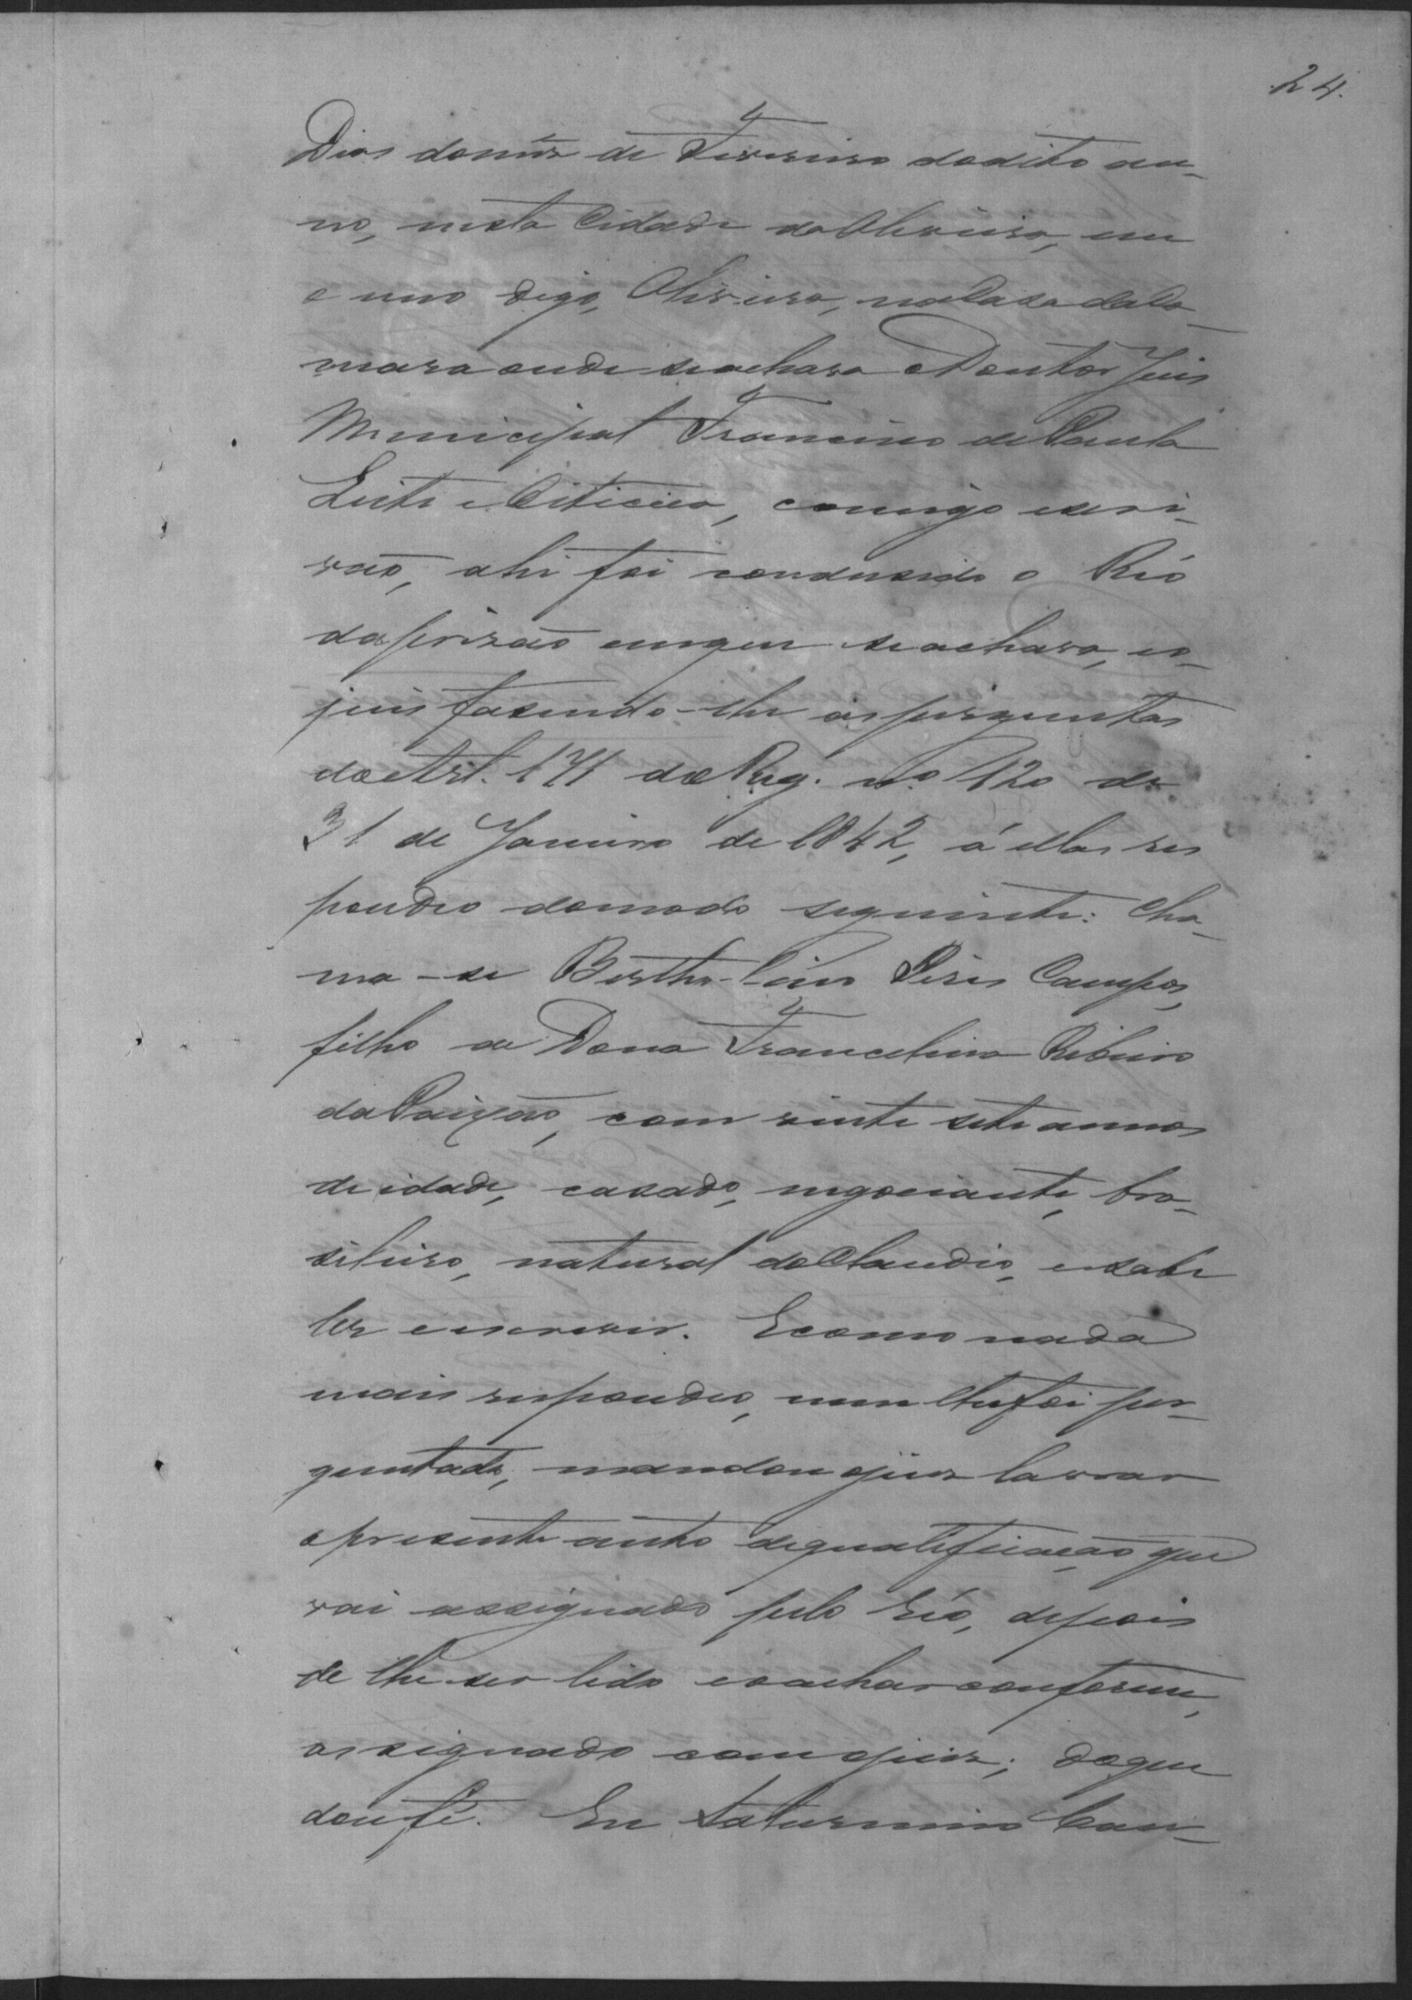 24.
Dias do mez de Fevereiro do dito an-
no, nesta Cidade da Oliveira, em
e uno digo, Oliveira, na Casa da Ca-
mara onde se achava o Doutor Juis
Municipal Francisco de Paula
Leite e Oiticica, comigo escri-
vão, ahi foi condusido o Réo
da prizão em que se achava, e o
juis fasendo-lhe as perguntas
do Art. 171 do Reg. nº 120 de
31 de Janeiro de 1842, á ellas res
pondeo do modo seguinte: Cha-
ma-se Bertholino Pires Campos,
filho de Dona Francelina Ribeiro
da Paixão, com vinte sete annos
de idade, casado, negociante, bra-
sileiro, natural do Claudio, e sabe
ler e escrever. E como nada
mais respondeo, nem lhe foi per-
guntado, mandou o juiz lavrar
o presente auto de qualificação que
vai assignado pelo réo, depois
de lhe ser lido e o achar conforme,
assignado com o juiz; do que
dou fé. Eu Saturnino Can-